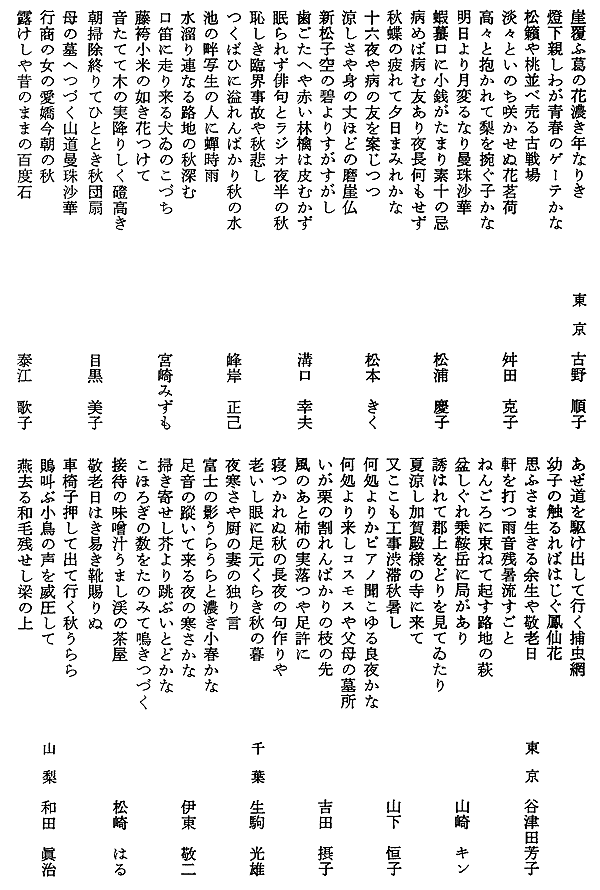 崖覆ふ葛の花濃き年なりき
燈下親しわが青春のゲーテかな
松籟や桃並べ売る古戦場
東京 古野 順子
淡々といのち咲かせぬ花茗荷
高々と抱かれて梨を捥ぐ子かな
明日より月変るなり曼珠沙華
舛田 克子
蝦蟇口に小銭がたまり素十の忌
病めば病む友あり夜長何もせず
秋蝶の疲れて夕日まみれかな
松浦 慶子
十六夜や病の友を案じつつ
涼しさや身の丈ほどの磨崖仏
新松子空の碧よりすがすがし
松本 きく
歯ごたへや赤い林檎は皮むかず
眠られず俳句とラジオ夜半の秋
恥しき臨界事故や秋悲し
溝口 幸夫
つくばひに溢れんばかり秋の水
池の畔写生の人に蟬時雨
水溜り連なる路地の秋深む
峰岸 正己
口笛に走り来る犬ゐのこづち
藤袴小米の如き花つけて
音たてて木の実降りしく磴高き
宮崎みずも
朝掃除終りてひととき秋団扇
母の墓へつづく山道曼珠沙華
行商の女の愛嬌今朝の秋
目黒 美子
露けしや昔のままの百度石
泰江 歌子
あぜ道を駆け出して行く捕虫網
幼子の触るればはじく鳳仙花
思ふさま生きる余生や敬老日
東京 谷津田芳子
軒を打つ雨音残暑流すごと
ねんごろに束ねて起す路地の萩
盆しぐれ乗鞍岳に局があり
山崎 キン
誘はれて郡上をどりを見てゐたり
夏涼し加賀殿様の寺に来て
又ここも工事渋滞秋暑し
山下 恒子
何処よりかピアノ聞こゆる良夜かな
何処より来しコスモスや父母の墓所
いが栗の割れんばかりの枝の先
吉田 摂子
風のあと柿の実落つや足許に
寝つかれぬ秋の長夜の句作りや
老いし眼に足元くらき秋の暮
千葉 生駒 光雄
夜寒さや厨の妻の独り言
富士の影うらうらと濃き小春かな
足音の蹤いて来る夜の寒さかな
伊東 敬二
掃き寄せし芥より跳ぶいとどかな
こほろぎの数をたのみて鳴きつづく
接待の味噌汁うまし渓の茶屋
松崎 はる
敬老日はき易き靴賜りぬ
車椅子押して出て行く秋うらら
鵙叫ぶ小鳥の声を威圧して
山梨 和田 眞治
燕去る和毛残せし梁の上